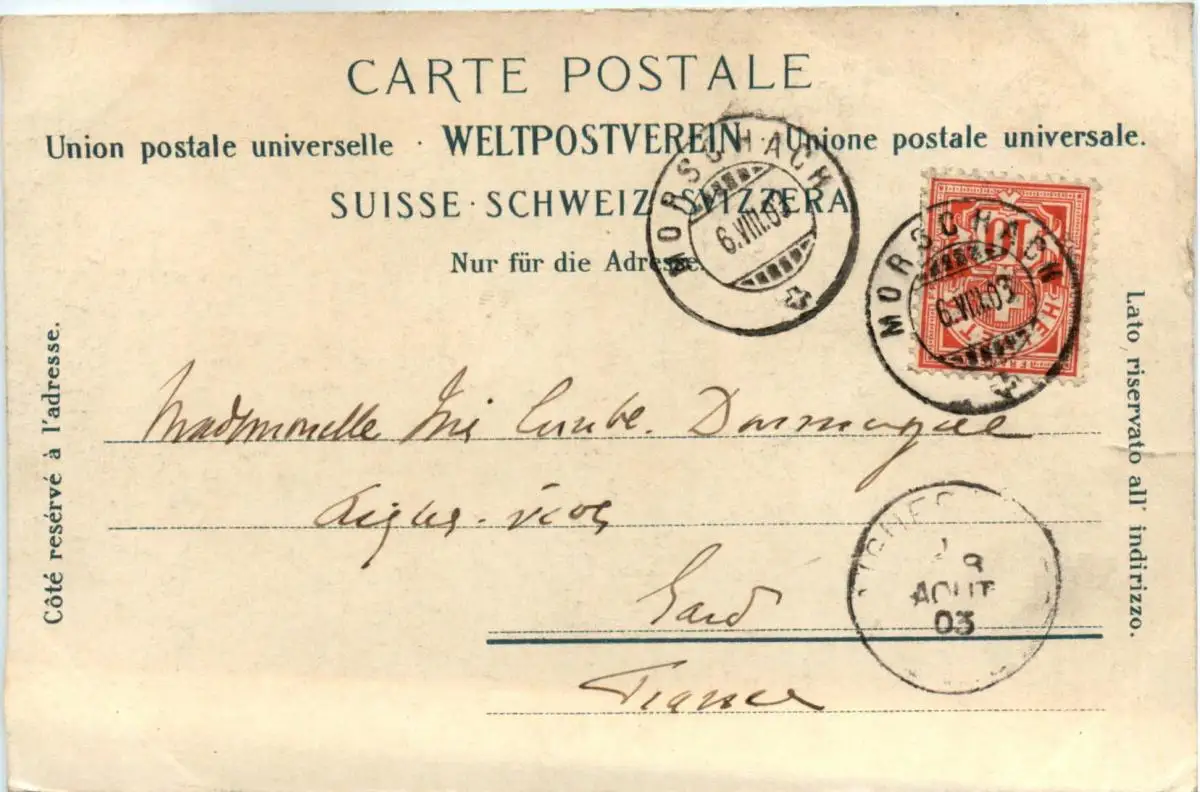 CARTE POSTALE
Union postale universelle · WELTPOSTVEREIN · Unione postale universale.
SUISSE · SCHWEIZ · SVIZZERA
Nur für die Adresse.
MORSCHACH
6.VIII.03
MORSCHACH
6.VIII.03
10
HELVET
Côté resérvé à l'adresse.
Lato riservato all' indirizzo.
Mademoiselle
Aigues-vives
Gard
France
AIGUES
8
AOUT
03